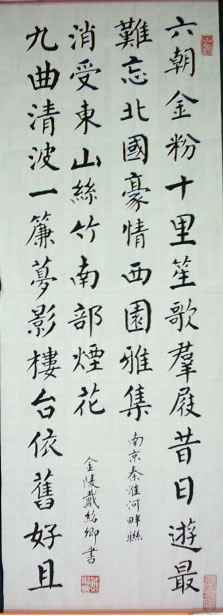 六朝金粉十里笙歌羣屐昔日遊最
難忘北國豪情西園雅集
南京秦淮河畔聯
九曲清波一簾夢影樓台依舊好且
消受東山絲竹南部煙花
金陵戴紹卿書